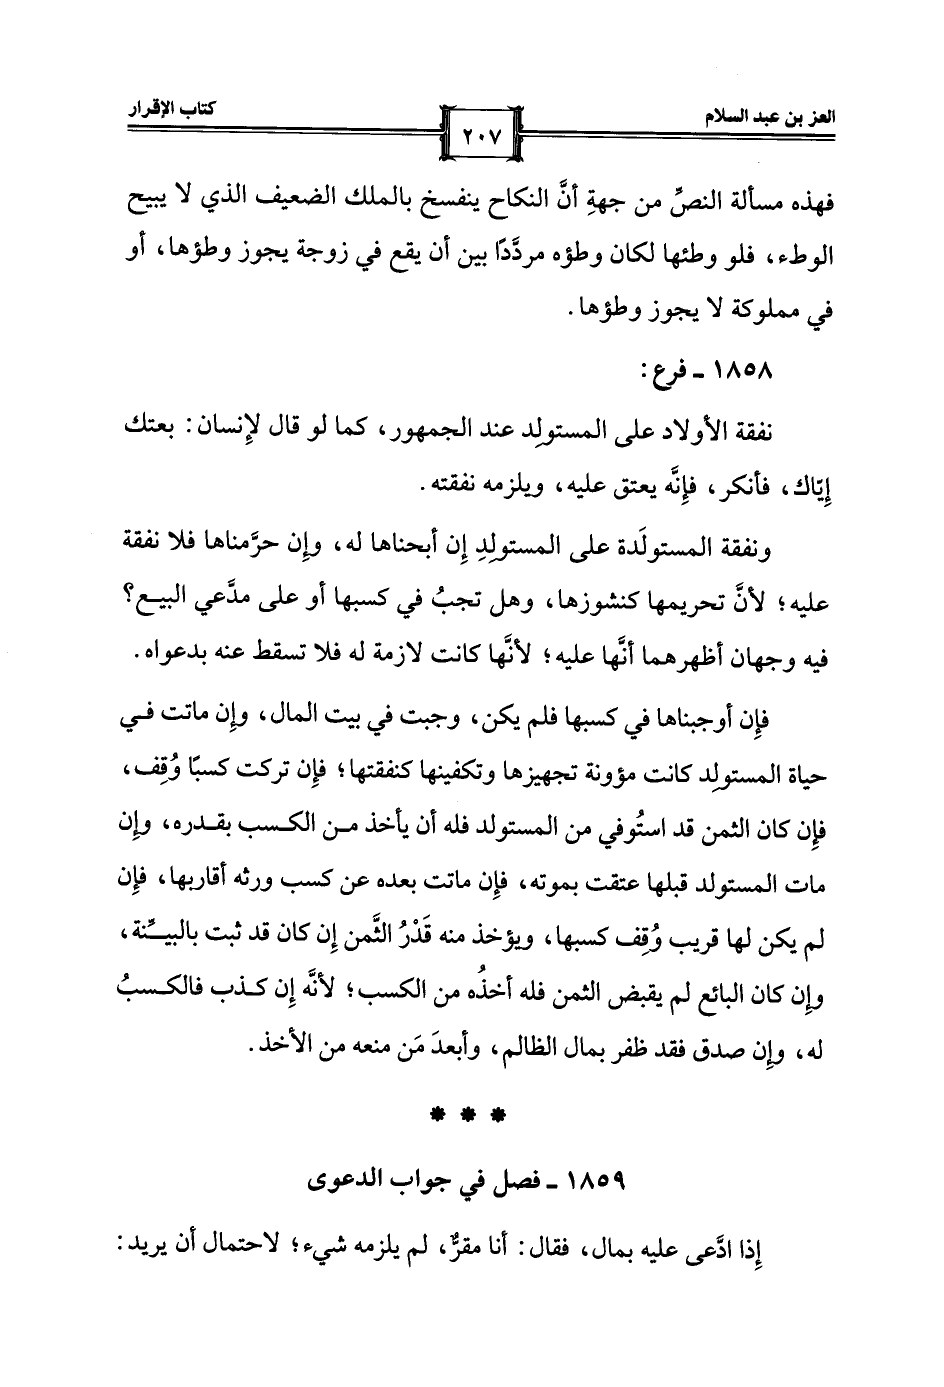 العز بن عبد السلام
٢٠٧
كتاب الإقرار
فهذه مسألة النصِّ من جهةِ أنَّ النكاح ينفسخ بالملك الضعيف الذي لا يبيح
الوطء، فلو وطئها لكان وطؤه مردَّدًا بين أن يقع في زوجة يجوز وطؤها، أو
في مملوكة لا يجوز وطؤها.
١٨٥٨ - فرع:
نفقة الأولاد على المستولِد عند الجمهور، كما لو قال لإنسان: بعتك
إيّاك، فأنكر، فإنَّه يعتق عليه، ويلزمه نفقته.
ونفقة المستولَدة على المستولِدِ إن أبحناها له، وإن حرَّمناها فلا نفقة
عليه؛ لأنَّ تحريمها كنشوزها، وهل تجبُ في كسبها أو على مدَّعي البيع؟
فيه وجهان أظهرهما أنَّها عليه؛ لأنَّها كانت لازمة له فلا تسقط عنه بدعواه.
فإن أوجبناها في كسبها فلم يكن، وجبت في بيت المال، وإن ماتت في
حياة المستولِد كانت مؤونة تجهيزها وتكفينها كنفقتها؛ فإن تركت كسبًا وُقِف،
فإن كان الثمن قد استُوفي من المستولد فله أن يأخذ من الكسب بقدره، وإن
مات المستولد قبلها عتقت بموته، فإن ماتت بعده عن كسب ورثه أقاربها، فإن
لم يكن لها قريب وُقِف كسبها، ويؤخذ منه قَدْرُ الثَّمن إن كان قد ثبت بالبيِّنة،
وإن كان البائع لم يقبض الثمن فله أخذُه من الكسب؛ لأنَّه إن كذب فالكسبُ
له، وإن صدق فقد ظفر بمال الظالم، وأبعدَ مَن منعه من الأخذ.
* * *
١٨٥٩ - فصل في جواب الدعوى
إذا ادَّعى عليه بمال، فقال: أنا مقرٌّ، لم يلزمه شيء؛ لاحتمال أن يريد: